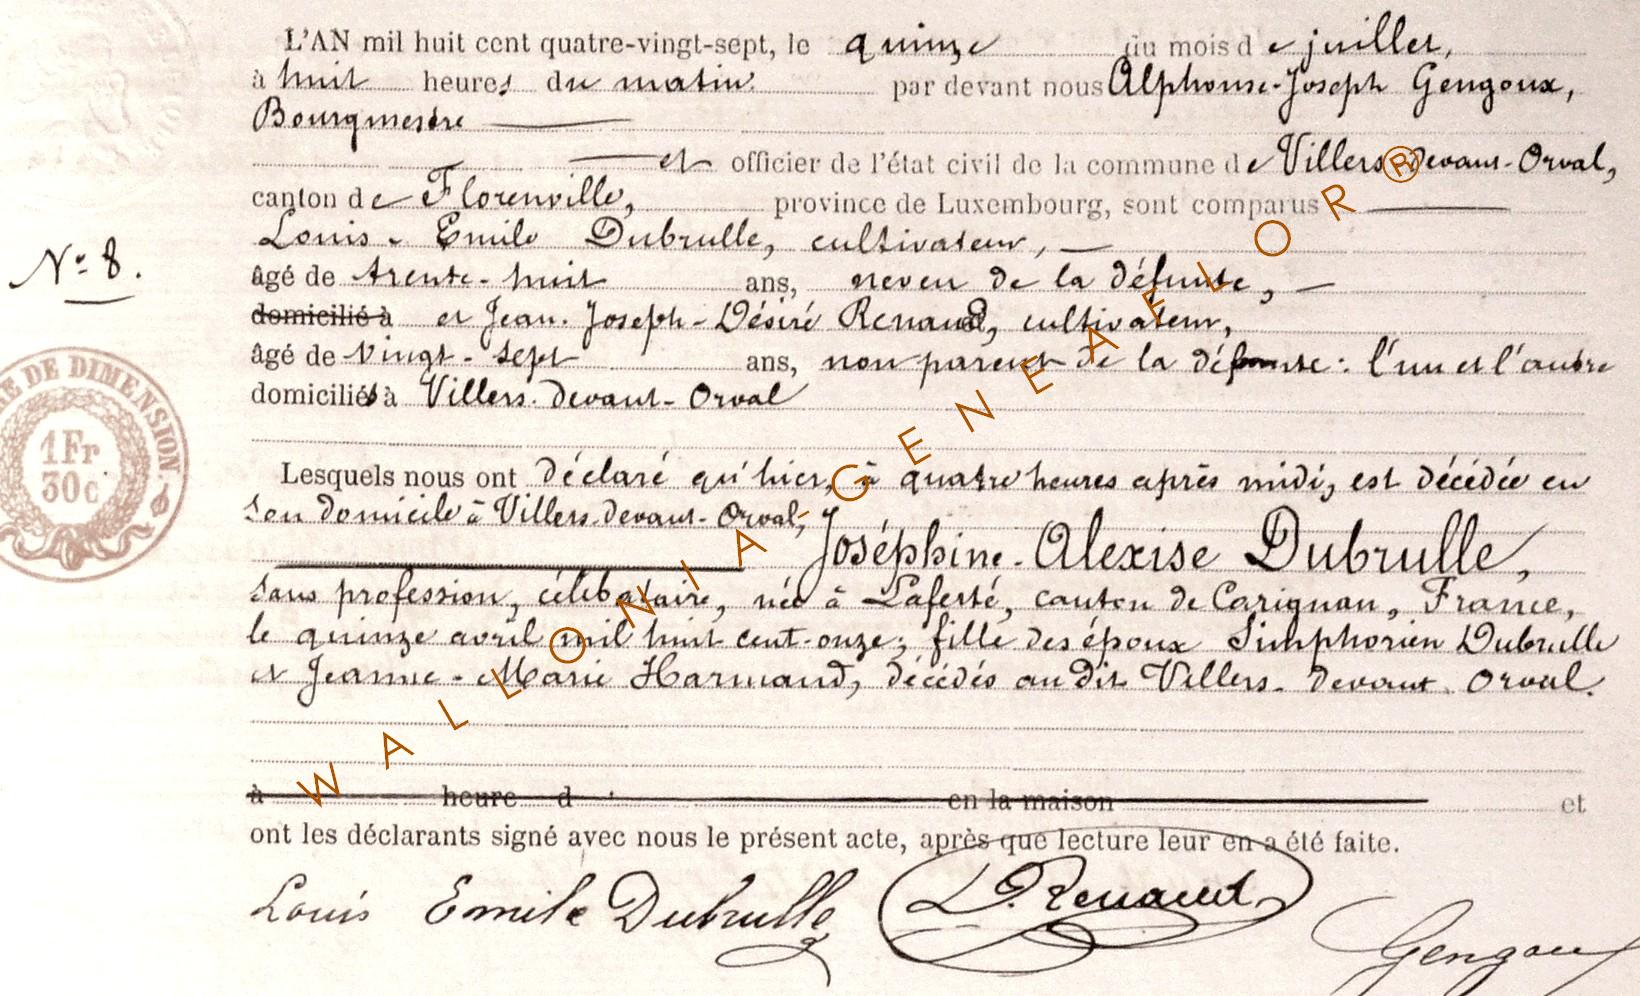 L'AN mil huit cent quatre-vingt-sept, le quinze du mois de juillet,
à huit heures du matin par devant nous Alphonse-Joseph Gengoux,
Bourgmestre
et officier de l'état civil de la commune de Villers-devant-Orval,
canton de Florenville, province de Luxembourg, sont comparus
Louis-Emile Dubrulle, cultivateur,
N° 8.
âgé de trente-huit ans, neveu de la défunte,
domicilié à et Jean-Joseph-Désiré Renaud, cultivateur,
âgé de vingt-sept ans, non parent de la défunte: l'un et l'autre
domiciliés à Villers-devant-Orval
TIMBRE DE DIMENSION
1Fr
30c
Lesquels nous ont déclaré qu'hier, à quatre heures après midi, est décédée en
son domicile à Villers-devant-Orval,
Joséphine-Alexise Dubrulle,
sans profession, célibataire, née à Laferté, canton de Carignan, France,
le quinze avril mil huit cent-onze; fille des époux Simphorien Dubrulle
et Jeanne-Marie Harmand, décédés au dit Villers-devant-Orval.
à heure d en la maison et
ont les déclarants signé avec nous le présent acte, après que lecture leur en a été faite.
Louis Emile Dubrulle D. Renaud Gengoux
WALLONIA-GENEAFLOR®